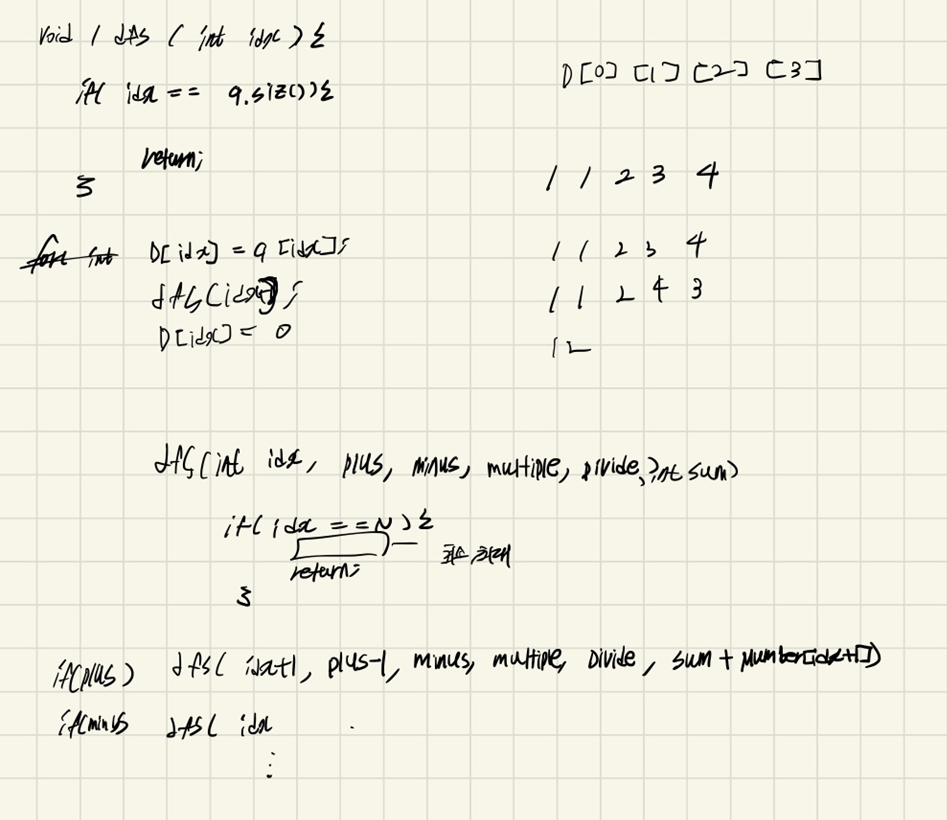 void / dfs ( int idx ) {
if( idx == a.size()){
return;
}
D[idx] = a[idx];
dfs(idx+1);
D[idx] = 0
D[0] [1] [2] [3]
1 1 2 3 4
1 1 2 3 4
1 1 2 4 3
1 2
dfs(int idx, plus, minus, multiple, divide, int sum)
if( idx == N ) {
return;
}
if(plus) dfs( idx+1, plus-1, minus, multiple, Divide, sum + number[idx+1])
if(minus dfs( idx .
⋮